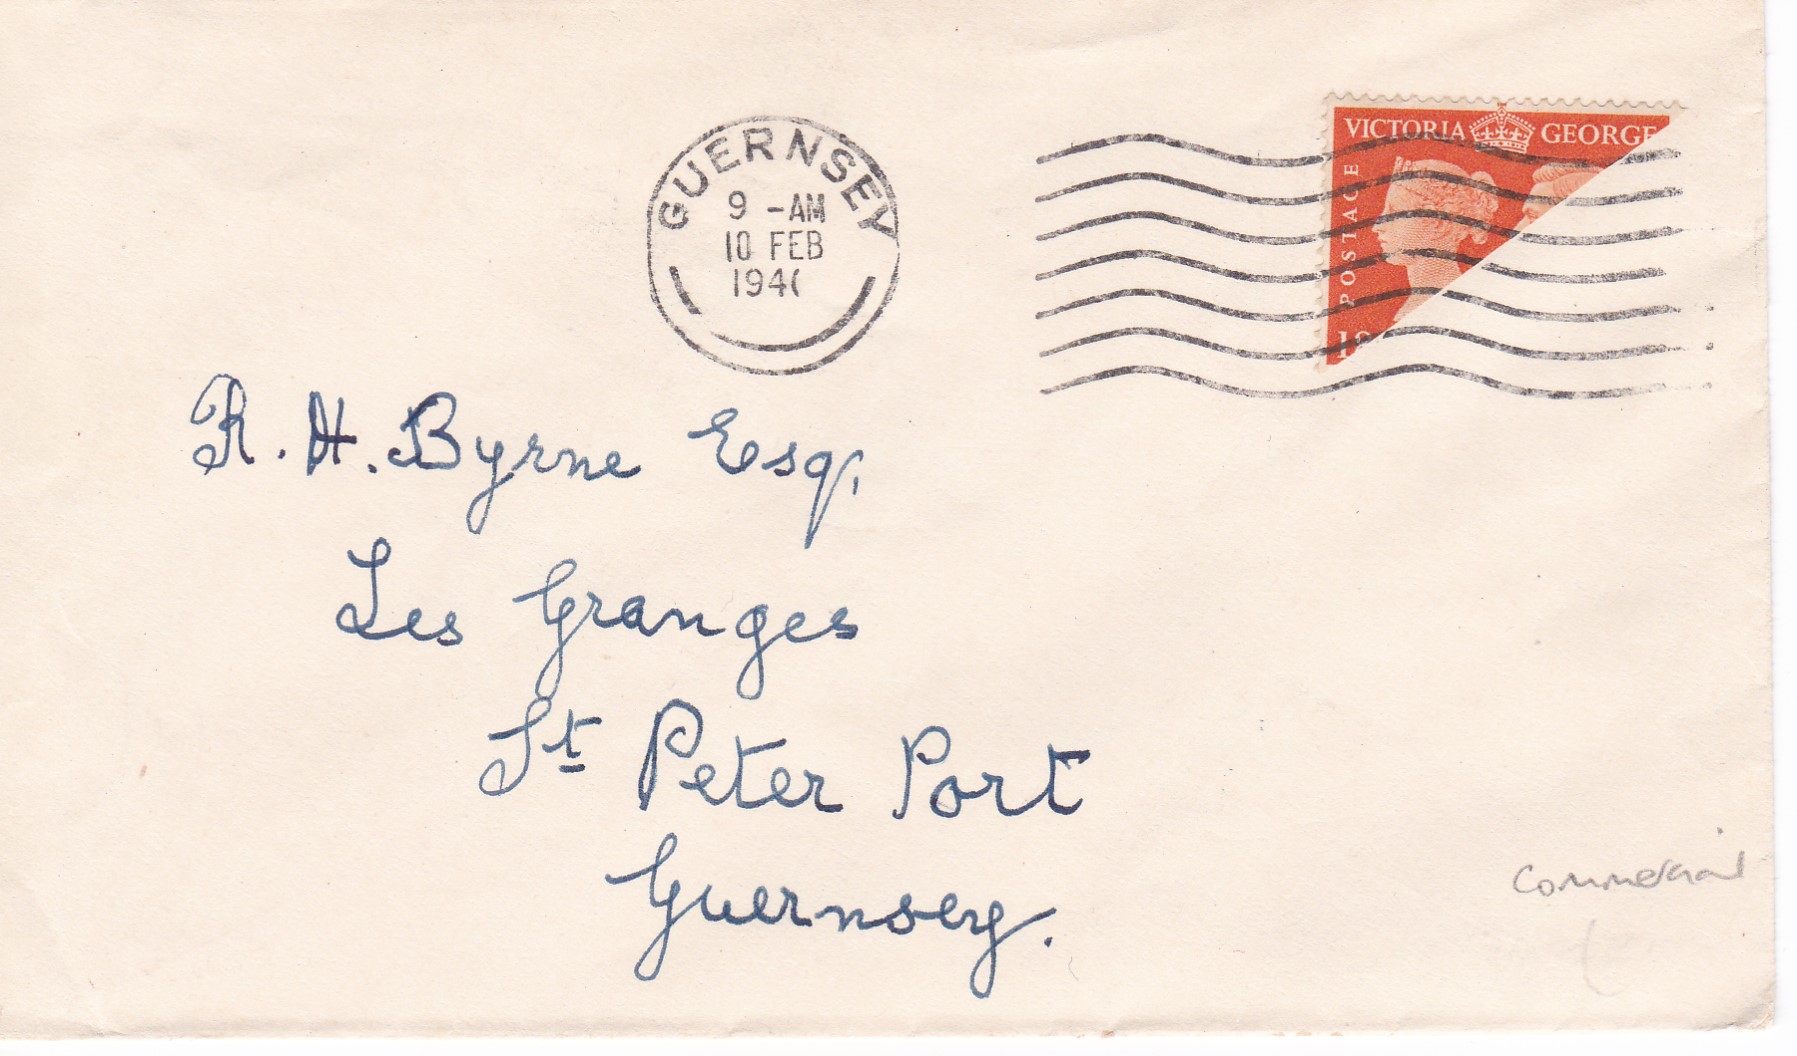 GUERNSEY
9 -AM
10 FEB
194
VICTORIA GEORGE
POSTAGE
R. H. Byrne Esq,
Les Granges
St Peter Port
Guernsey.
Commercial